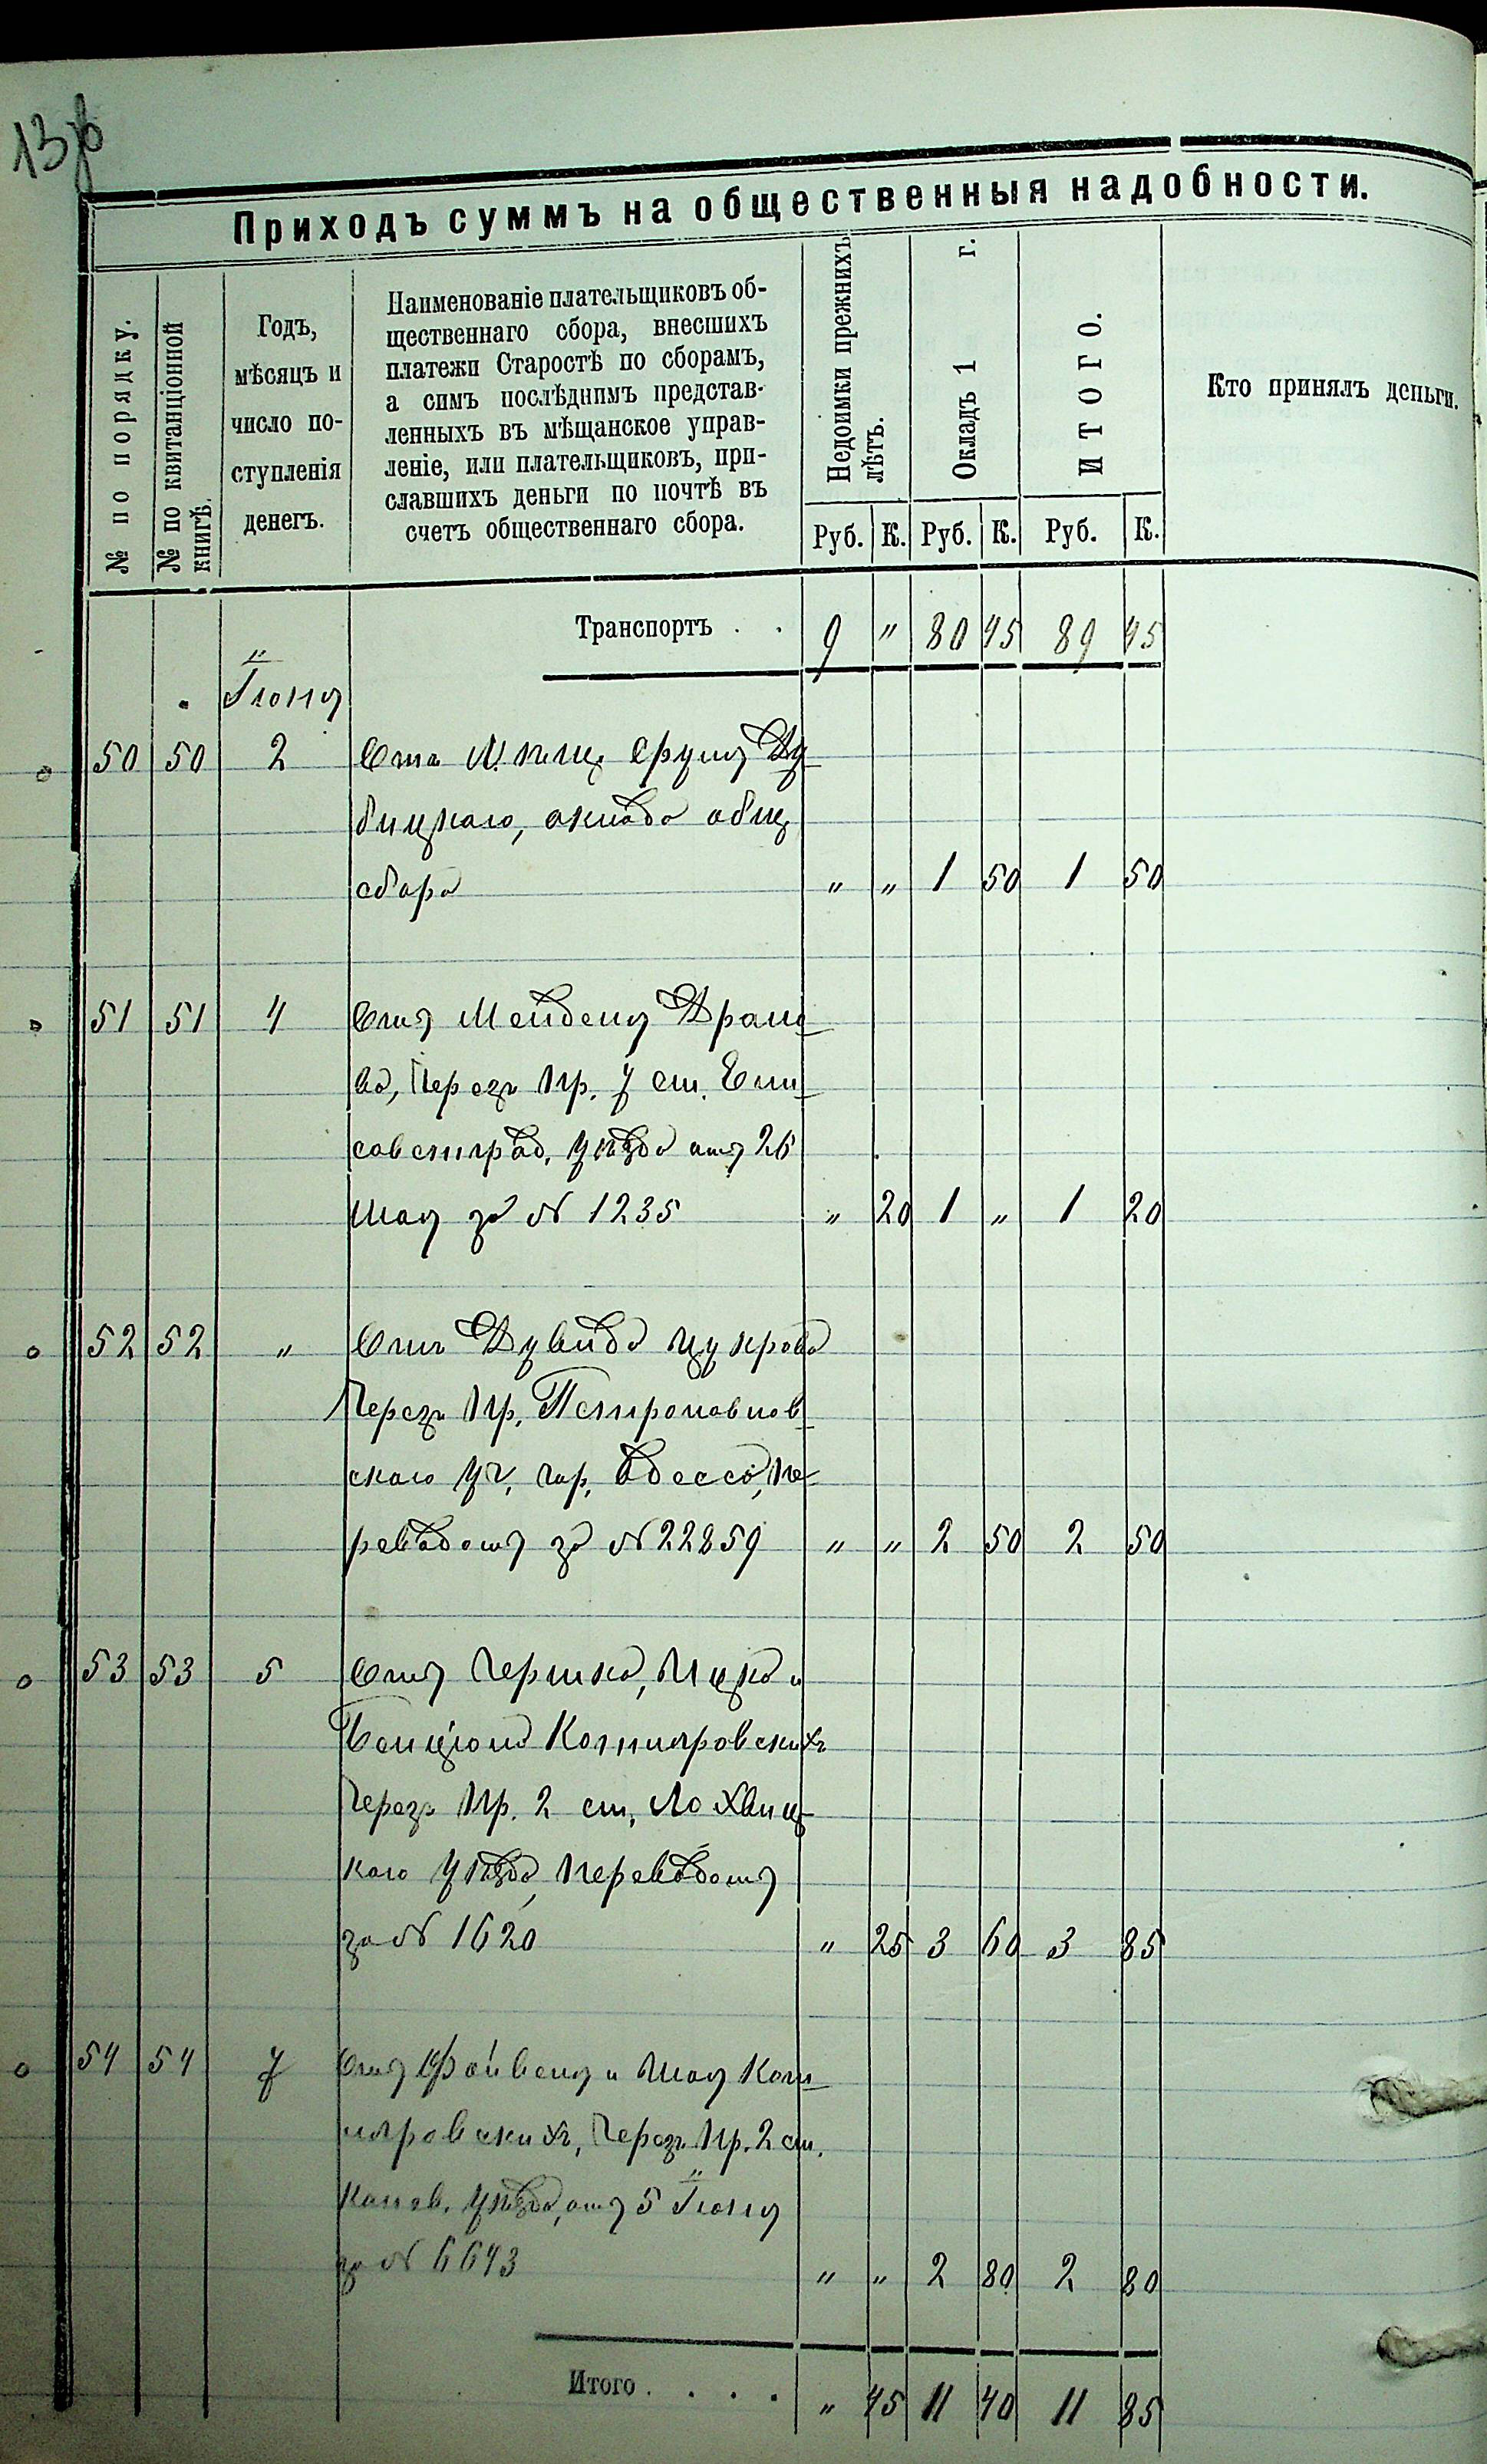 13 об
Приходъ суммъ на общественныя надобности.
№ по порядку.
№ по квитанціонной книгѣ.
Годъ,
мѣсяцъ и
число по-
ступленія
денегъ.
Наименованіе плательщиковъ об-
щественнаго сбора, внесшихъ
платежи Старостѣ по сборамъ,
а симъ послѣднимъ представ-
ленныхъ въ мѣщанское управ-
леніе, или плательщиковъ, при-
славшихъ деньги по почтѣ въ
счетъ общественнаго сбора.
Недоимки прежнихъ лѣтъ.
Окладъ 1 г.
ИТОГО.
Кто принялъ деньги.
Руб. К. Руб. К. Руб. К.
Транспортъ . . 9 " 80 45 89 45
Іюня
50 50 2 Отъ Ду-
бицкаго, оклада общ.
сбора " " 1 50 1 50
51 51 4 Отъ Менделя
Чрезъ Пр. 7 ст. Ели-
саветград. уѣзда отъ 26
Мая за № 1235 " 20 1 " 1 20
52 52 " Отъ Дувида Цукрова
Черезъ Пр. Петропавлов-
скаго уч. гор. Одесса, пе-
реводомъ за № 22859 " " 2 50 2 50
53 53 5 Отъ Гершка, Ицка и
Бенціона Котляровскихъ
Черезъ Пр. 2 ст. Лохвиц-
каго уѣзда, переводомъ
за № 1620 " 25 3 60 3 85
54 54 7 Отъ Файвеля и Кот-
ляровскихъ, Черезъ Пр. 2 ст.
Канев. уѣзда, отъ 5 Іюня
за № 6643 " " 2 80 2 80
Итого . . . . " 45 11 40 11 85